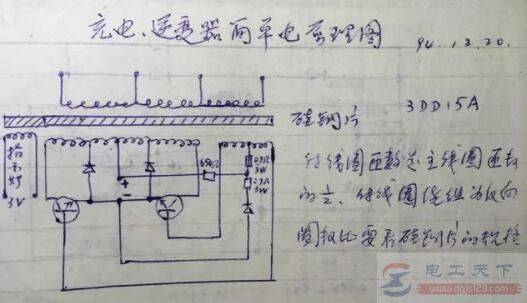 充电、逆变器简单电原理图 94.12.20.
硅钢片 3DD15A
付线圈匝数是主线圈匝数
的 付线圈绕组为反向
圈数比要看硅钢片的规格
指示灯
3V
650Ω
0.7Ω
3W
2.7Ω
3W
+
-
电工天下
www.dgjs123.com